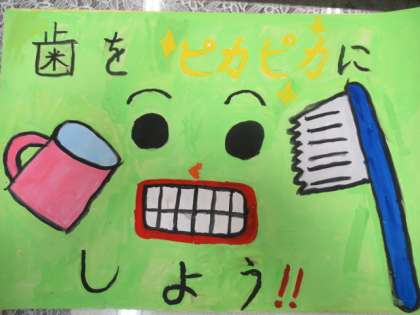 歯をピカピカに
しよう!!